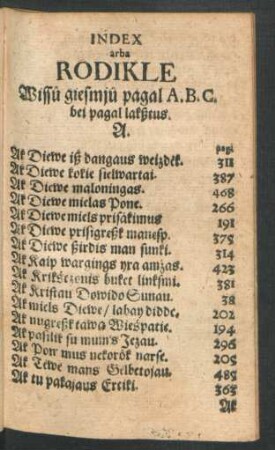 INDEX
arba
RODIKLE
Wissû giesmjû pagal A. B. C.
bei pagal lakßtus.
A.
pagi
Ak Diewe iß dangaus weizdėk. 311
Ak Diewe kokie sielwartai. 387
Ak Diewe maloningas. 468
Ak Diewe mielas Pone. 266
Ak Diewe miels prisakimus 191
Ak Diewe prisigreßk manesp. 375
Ak Diewe ßirdis man sunki. 314
Ak Kaip wargings yra amżas. 423
Ak Krikßczenis buket linksmi. 381
Ak Kristau Dowido Sunau. 38
Ak miels Diewe / labay didde. 202
Ak nugreßk tawa Wießpatie. 194
Ak pasilik su mums Jezau. 296
Ak Pon mus nekorok narse. 205
Ak Tewe mans Gelbetojau. 485
Ak tu pakajaus Ertiki. 363
Ak